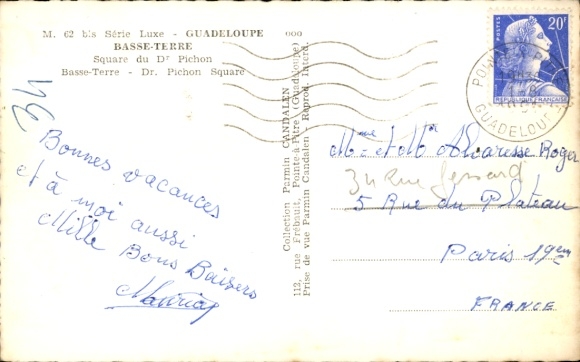 M. 62 bis Série Luxe - GUADELOUPE
BASSE-TERRE
Square du Dr Pichon
Basse-Terre - Dr. Pichon Square
Bonnes vacances
et à moi aussi
Mille Bons Baisers
Collection Parmin CANDALEN
112, rue Frébault, Pointe-à-Pitre (Guadeloupe)
Prise de vue Parmin Candalen - Reprod. Interd.
POSTES
20F
REPUBLIQUE FRANÇAISE
GUADELOUPE
Mme et Mr Alvaresse Roger
34 Rue
5 Rue du Plateau
Paris 19em
FRANCE